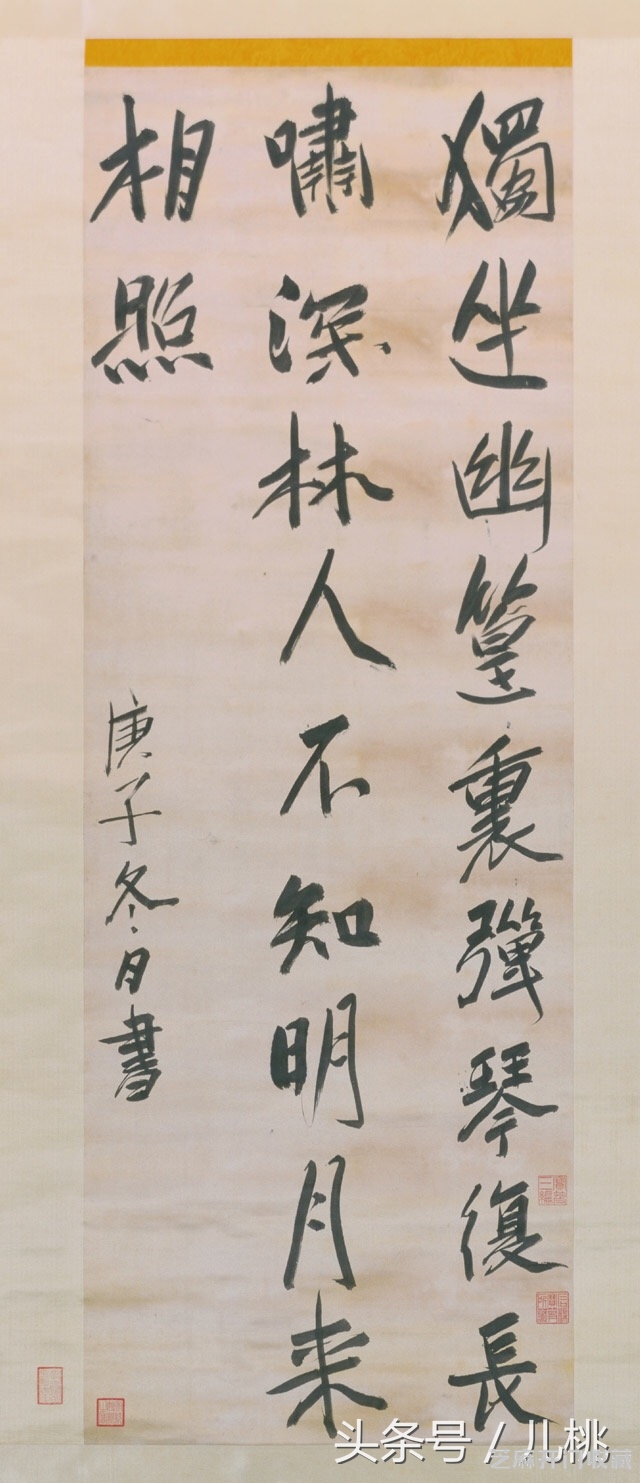 獨坐幽篁裏彈琴復長
嘯深林人不知明月来
相照
庚子冬日書
头条号 / 儿桃
芝麻开门收藏